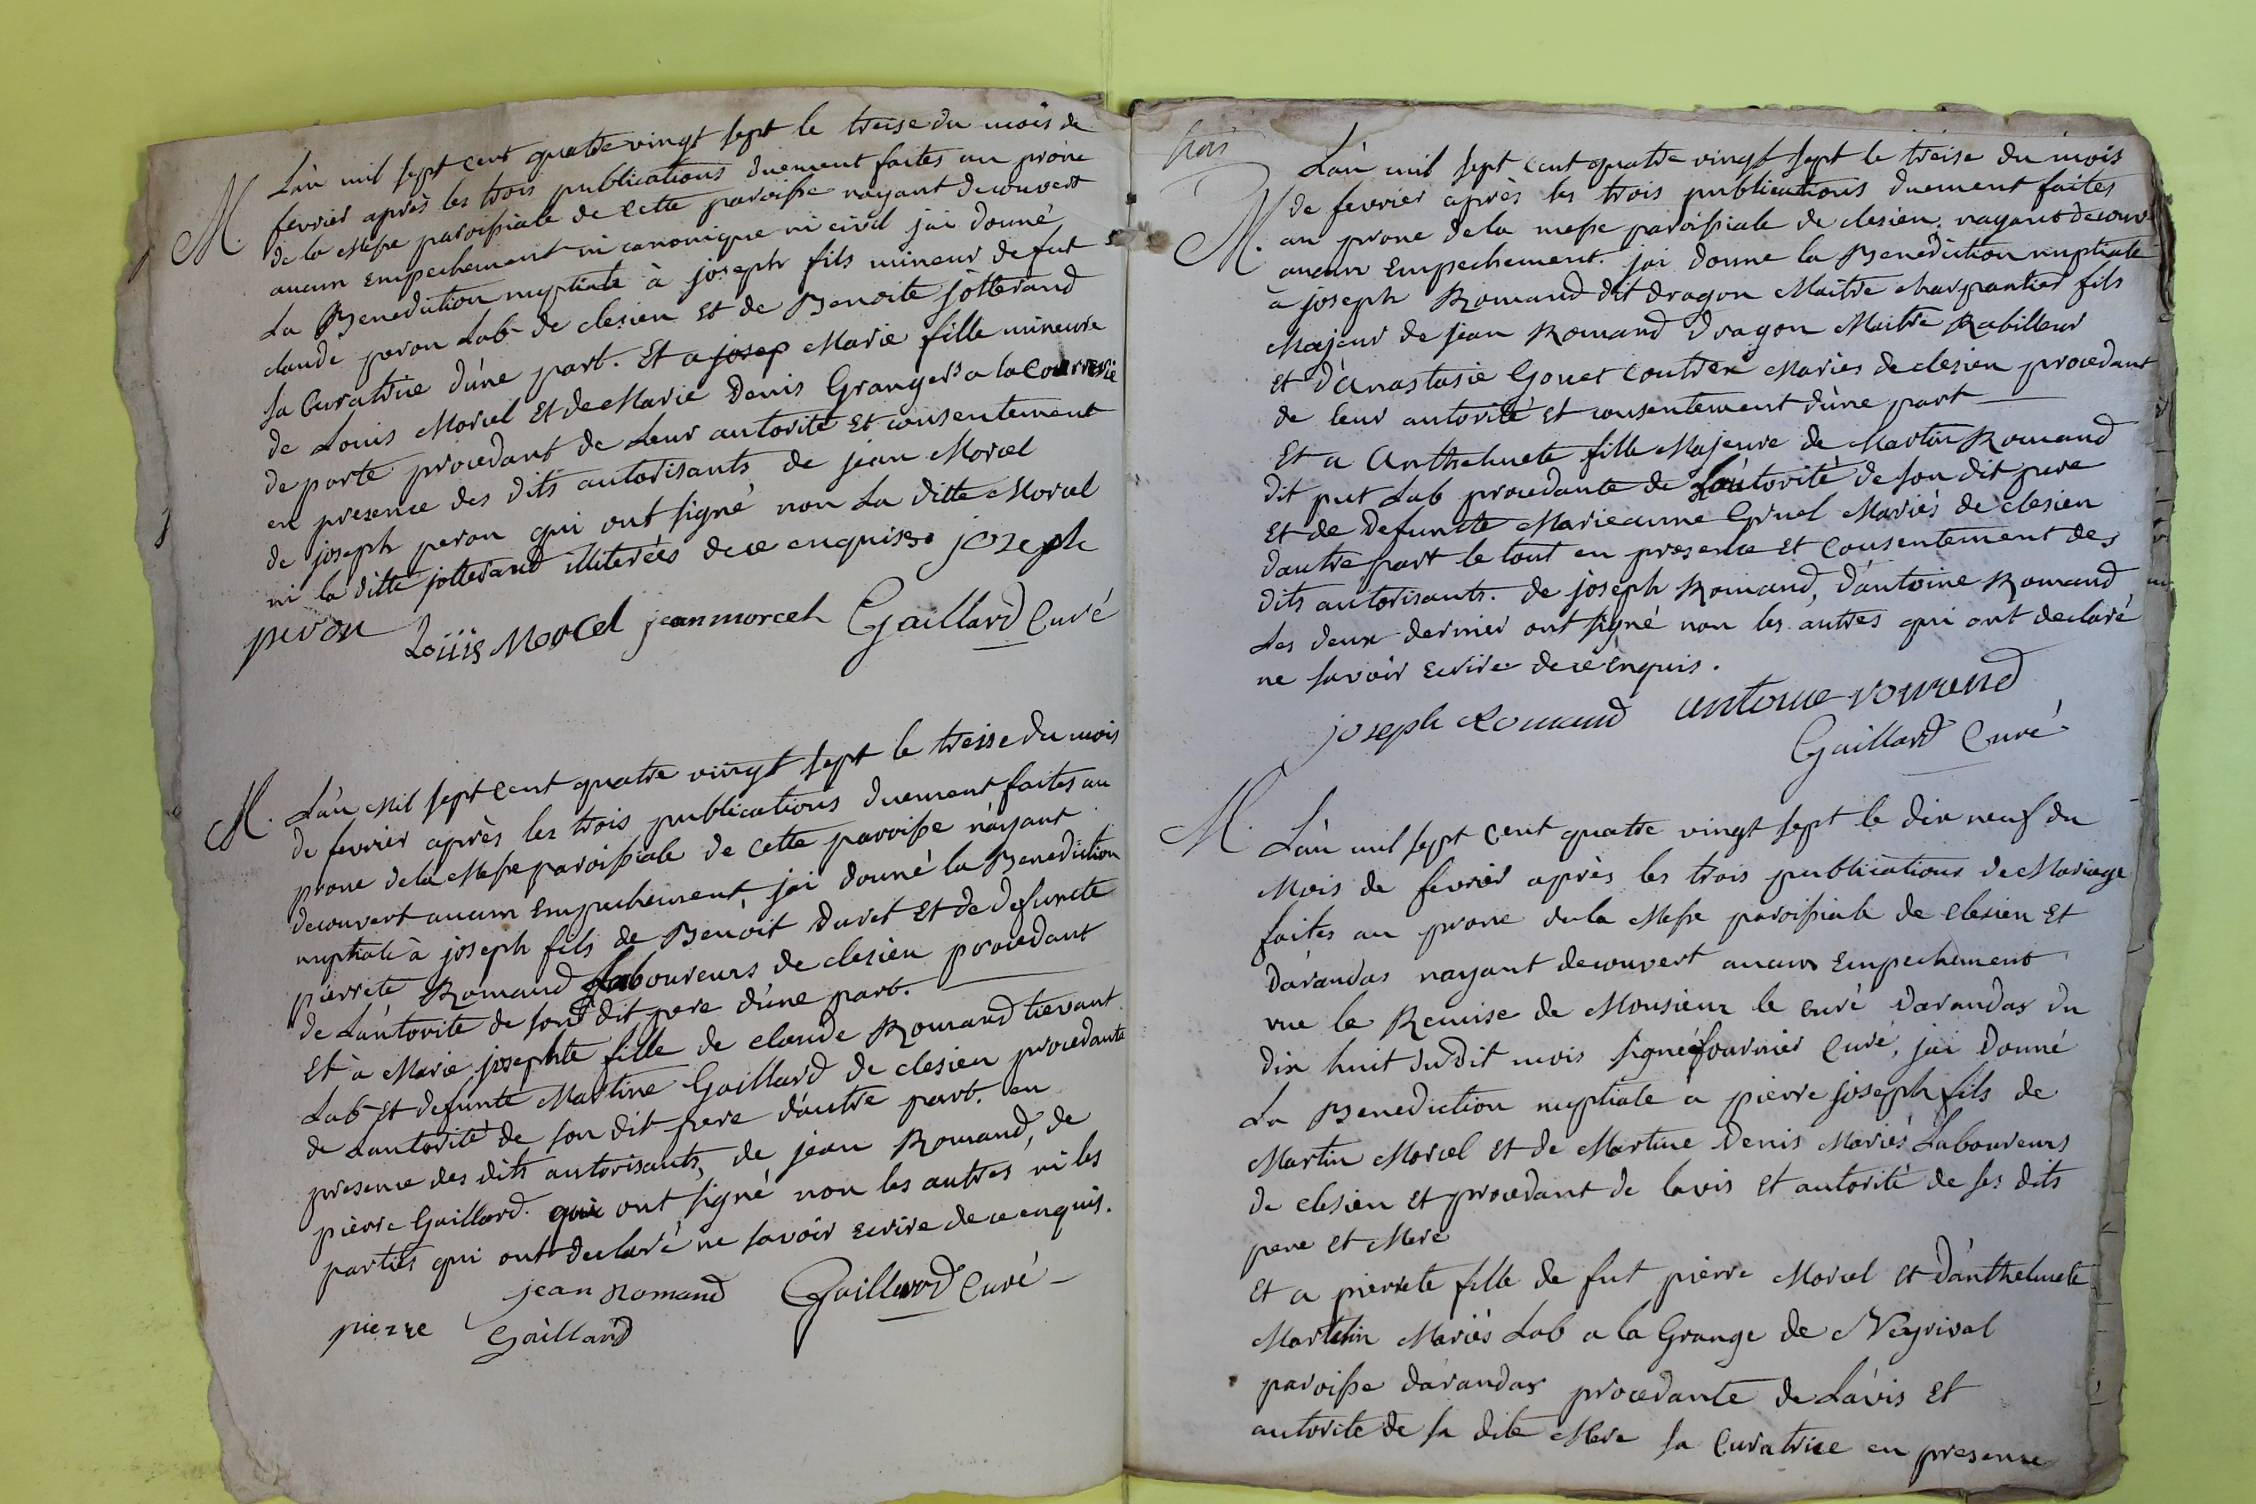 M. L'an mil sept cent quatre vingt sept le treise du mois de
fevrier après les trois publications duement faites au prône
de la Messe paroissiale de cette paroisse nayant decouvert
aucun Empechement ni canonique ni civil jai donné
La Benediction nuptiale à joseph fils mineur de fut
claude peron Lab de clesieu Et de Benoite jotterand
sa Curatrice d'une part. Et a josep Marie fille mineure
de Louis Morcel Et de Marie Denis Grangers a la
de porte procedant de Leur autorité Et consentement
en presence des dits autorisants de jean Morcel
de joseph peron qui ont signé non La ditte Morcel
ni la ditte jotterand illiterées de ce enquises joseph
peron Loiiis Morcel jean morcel Gaillard Curé
M. L'an Mil sept cent quatre vingt sept le treise du mois
de fevrier après les trois publications duement faites au
prone de la Messe paroissiale de cette paroisse n'ayant
decouvert aucun Empechement, jai donné la Benediction
nuptiale à joseph fils de Benoit Duret Et de Defuncte
pierrete Romand Laboureurs de clesieu procedant
de L'autorite de son dit pere d'une part.
Et à Marie josephte fille de claude Romand tievant
Lab Et defunte Martine Gaillard de clesieu procedante
de L'autorité de son dit pere d'autre part. en
presence des dits autorisants, de jean Romand, de
pierre Gaillard. qui ont signé non les autres ni les
parties qui ont declaré ne savoir Ecrire de ce enquis.
jean Romand Gaillard Curé
pierre Gaillard
trois
L'an mil sept cent quatre vingt sept le treise du mois
de fevrier après les trois publications duement faites
M. au prone de la messe paroissiale de clesieu. nayant decouv
aucun Empechement. jai donne la Benediction nuptiale
à joseph Romand dit dragon Maitre charpantier fils
Majeur de jean Romand dragon Maitre Rabilleur
Et d'Anastasie Gouet Mariés de clesieu procedant
de leur autorité Et consentement d'une part
Et a Anthelmete fille Majeure de Martin Romand
dit put Lab procedante de L'autorité de son dit pere
Et de Defuncte Marieanne Gruel Mariés de clesieu
d'autre part le tout en presence Et Consentement des
dits autorisants. de joseph Romand, d'antoine Romand
Les deux dernier ont signé non les autres qui ont declaré
ne savoir Ecrire de ce Enquis.
joseph Romand antoine romend
Gaillard Curé
M. L'an mil sept cent quatre vingt sept le dix neuf du
Mois de fevrier après les trois publications de Mariage
faites au prone de la Messe paroissiale de clesieu Et
d'arandas nayant decouvert aucun Empechement
vue le Remise de Monsieur le curé Darandas du
dix huit dudit mois signé fournier Curé, jai donné
La Benediction nuptiale a pierre joseph fils de
Martin Morcel Et de Martine Denis Mariés Laboureurs
de clesieu Et procedant de lavis Et autorité de ses dits
pere Et Mere
Et a pierrete fille de fut pierre Morcel Et d'anthelmete
Martelin Mariés Lab a la Grange de Neyrival
paroisse d'arandas procedante de L'avis Et
autorité de sa dite Mere sa Curatrice en presence